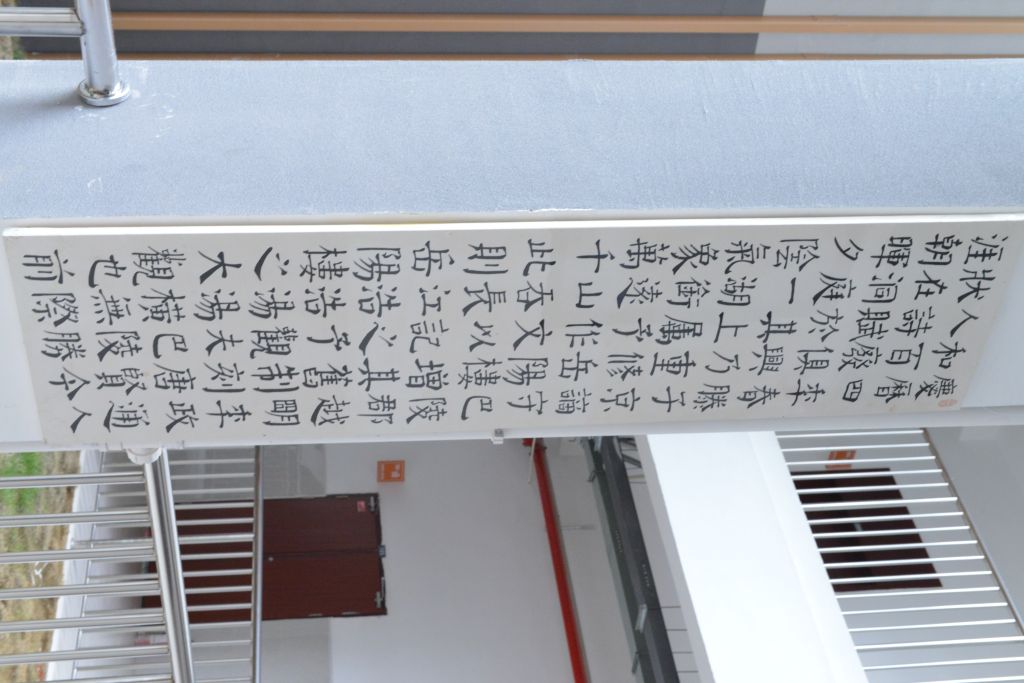 慶曆四年春滕子京謫守巴陵郡越明年政通人
和百廢俱興乃重修岳陽樓增其舊制刻唐賢今
人詩賦於其上屬予作文以記之予觀夫巴陵勝
狀在洞庭一湖銜遠山吞長江浩浩湯湯橫無際
涯朝暉夕陰氣象萬千此則岳陽樓之大觀也前